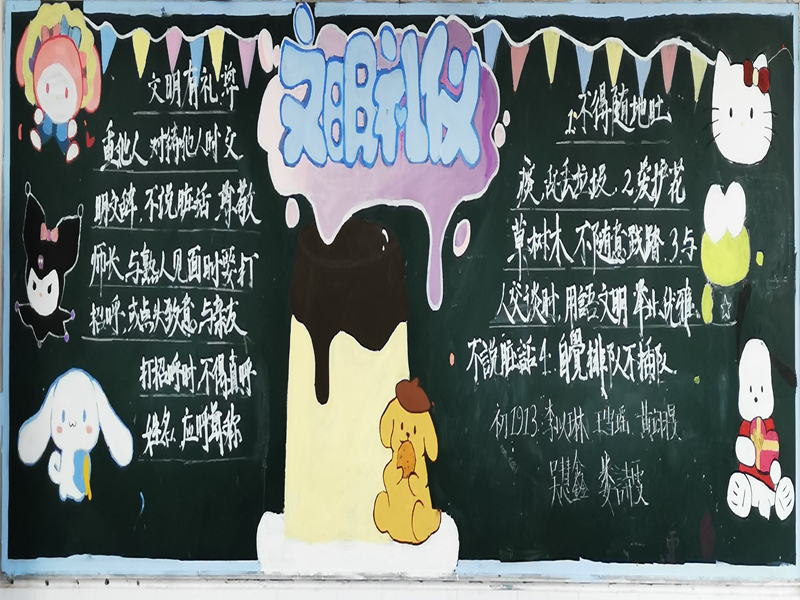 文明礼仪
文明有礼 尊
重他人 对待他人时文
明文辞 不说脏话 尊敬
师长 与熟人见面时要打
招呼 或点头致意 与亲友
打招呼时 不得直呼
姓名 应呼尊称
1.不得随地吐
痰 乱丢垃圾 2.爱护花
草树木 不随意践踏 3.与
人交谈时 用語文明 举止优雅
不説脏話 4:自覺排队不插队
初1913: